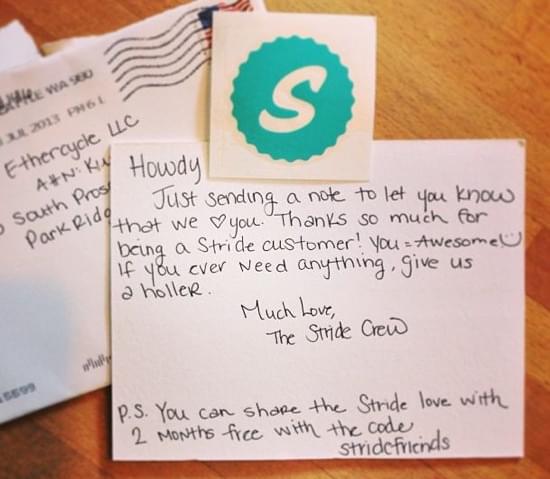 SEATTLE WA 980
JUL 2013 PM 6 L
Ethercycle LLC
Attn:
South Pros
Park Ridg
S
Howdy
Just sending a note to let you know
that we ♡ you. Thanks so much for
being a Stride customer! You = Awesome
If you ever need anything, give us
a holler.
Much Love,
The Stride Crew
P.S. You can share the Stride love with
2 months free with the code
stridefriends